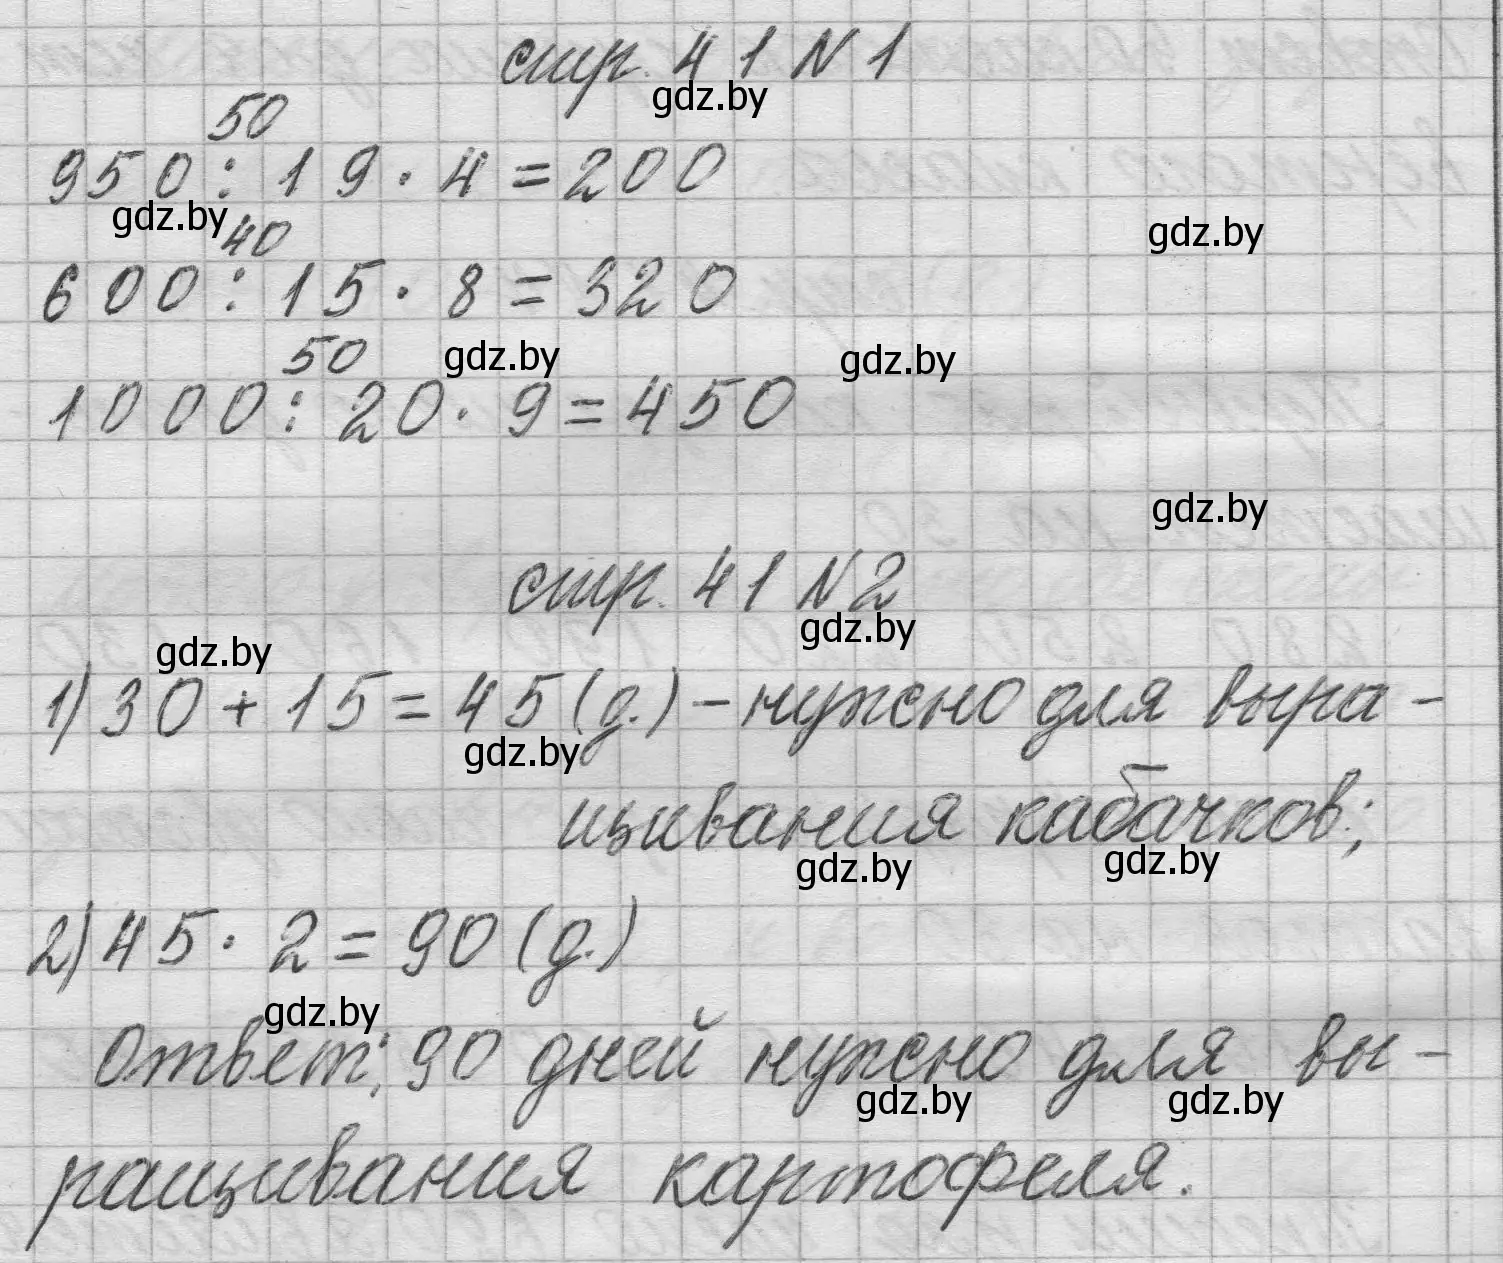 стр. 41 N 1
gdz.by
50
950 : 19 · 4 = 200
gdz.by
gdz.by
40
600 : 15 · 8 = 320
50
gdz.by
gdz.by
1000 : 20 · 9 = 450
gdz.by
стр. 41 N 2
gdz.by
gdz.by
1) 30 + 15 = 45 (д.) – нужно для выра-
gdz.by
щивания кабачков;
gdz.by
gdz.by
2) 45 · 2 = 90 (д.)
gdz.by
Ответ: 90 дней нужно для вы-
gdz.by
gdz.by
ращивания картофеля.